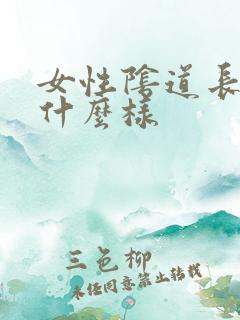 女性陰道長
什麼樣
三色柳
未经同意禁止转载